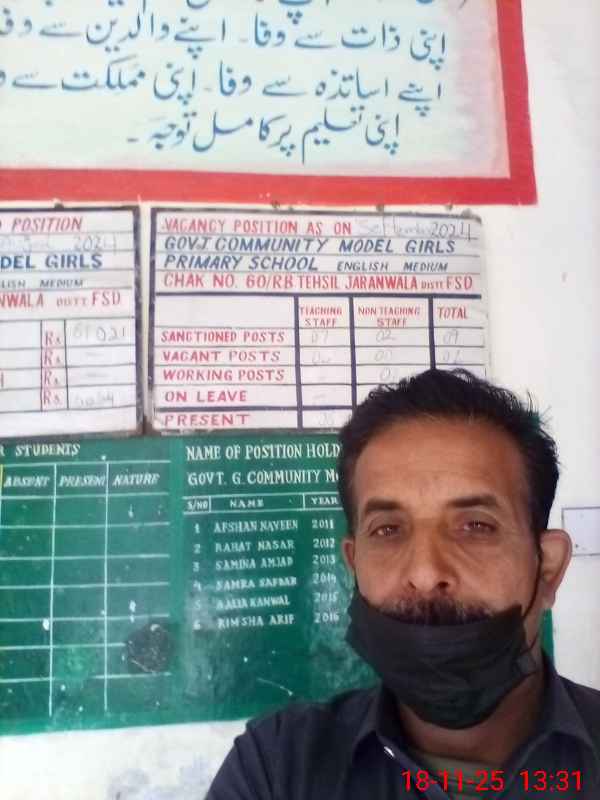 اپنی ذات سے وفا۔ اپنے والدین سے وفا
اپنے اساتذہ سے وفا۔ اپنی مملکت سے و
اپنی تعلیم پر کامل توجہ۔
POSITION
2024
DEL GIRLS
LISH MEDIUM
NWALA DISTT FSD
Rs.
Rs.
Rs.
Rs.
VACANCY POSITION AS ON September 2024
GOVT COMMUNITY MODEL GIRLS
PRIMARY SCHOOL ENGLISH MEDIUM
CHAK NO. 60/RB TEHSIL JARANWALA DISTT FSD
TEACHING STAFF NON TEACHING STAFF TOTAL
SANCTIONED POSTS 07 02 09
VACANT POSTS
WORKING POSTS
ON LEAVE
PRESENT
R STUDENTS
ABSENT PRESENT NATURE
NAME OF POSITION HOLD
GOVT. G. COMMUNITY MO
S/NO NAME YEAR
1 AFSHAN NAVEEN 2011
2 RAHAT NASAR 2012
3 SAMINA AMJAD 2013
4 SAMRA SAFDAR 2014
5 AALIA KANWAL 2015
6 RIMSHA ARIF 2016
18-11-25 13:31